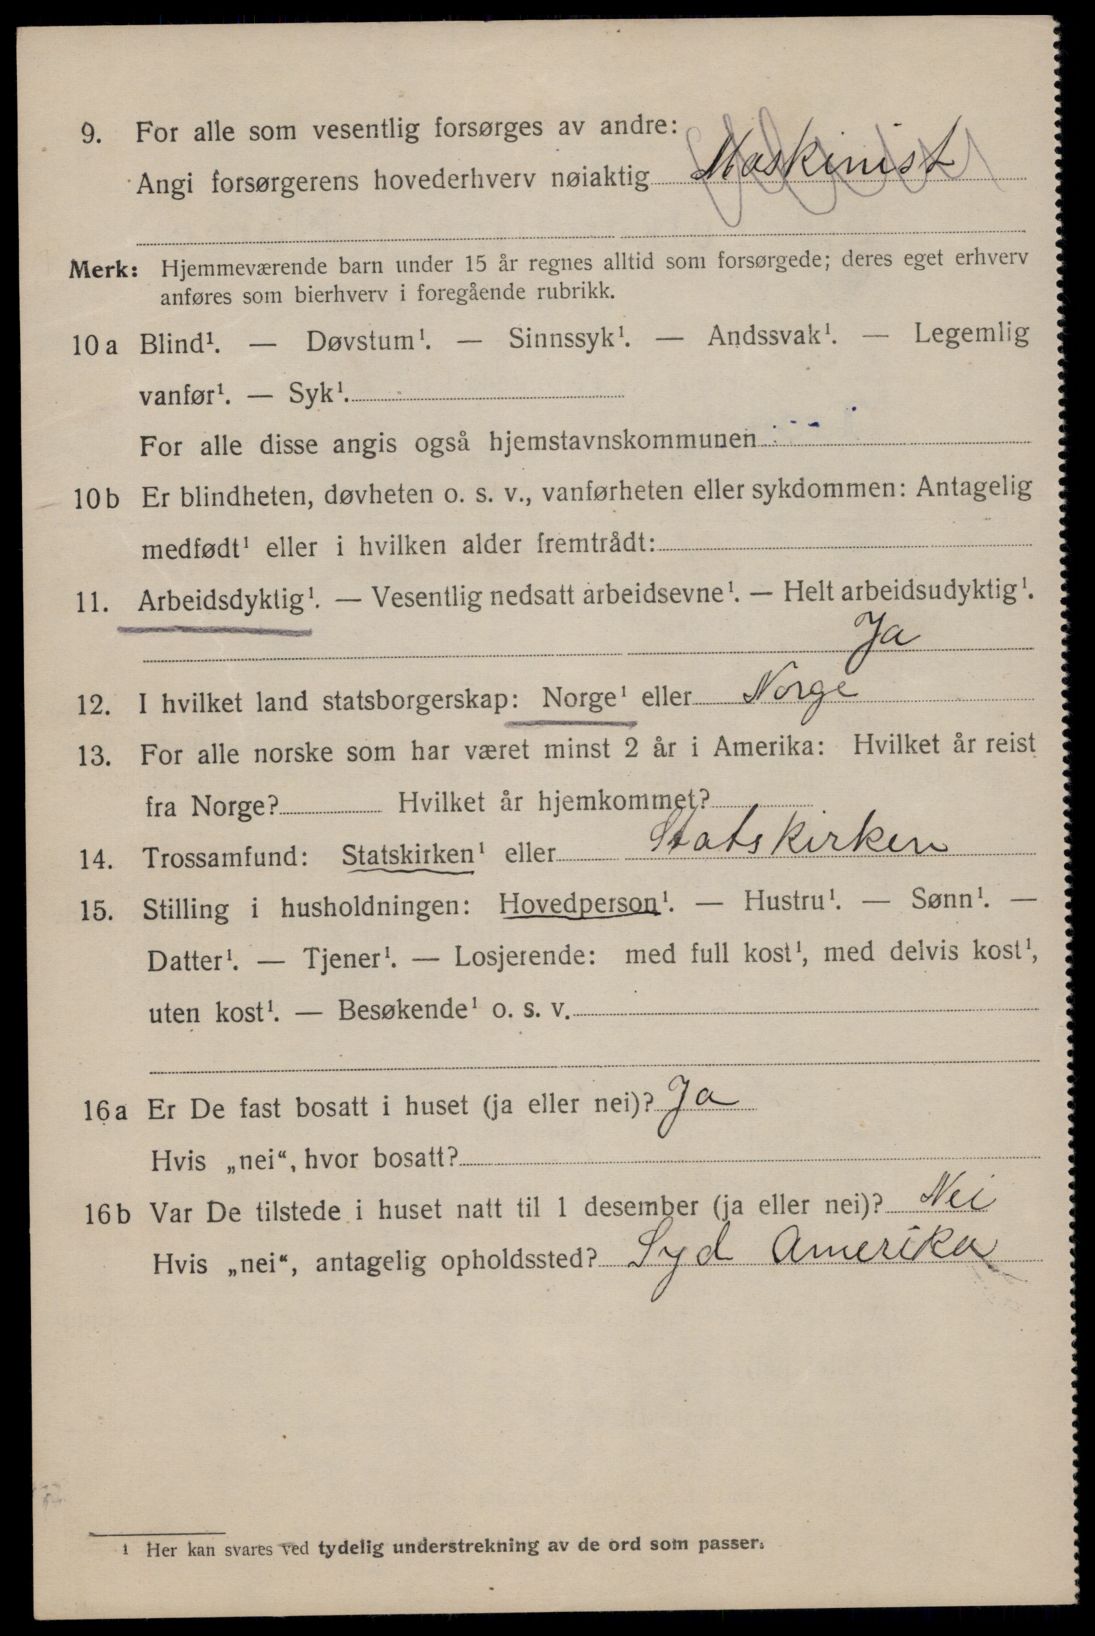 9. For alle som vesentlig forsørges av andre:
Angi forsørgerens hovederhverv nøiaktig Maskinist
Merk: Hjemmeværende barn under 15 år regnes alltid som forsørgede; deres eget erhverv
anføres som bierhverv i foregående rubrikk.
10 a Blind¹. — Døvstum¹. — Sinnssyk¹. — Andssvak¹. — Legemlig
vanfør¹. — Syk¹.
For alle disse angis også hjemstavnskommunen
10 b Er blindheten, døvheten o. s. v., vanførheten eller sykdommen: Antagelig
medfødt¹ eller i hvilken alder fremtrådt:
11. Arbeidsdyktig¹. — Vesentlig nedsatt arbeidsevne¹. — Helt arbeidsudyktig¹.
Ja
12. I hvilket land statsborgerskap: Norge¹ eller Norge
13. For alle norske som har været minst 2 år i Amerika: Hvilket år reist
fra Norge? Hvilket år hjemkommet?
14. Trossamfund: Statskirken¹ eller Statskirken
15. Stilling i husholdningen: Hovedperson¹. — Hustru¹. — Sønn¹. —
Datter¹. — Tjener¹. — Losjerende: med full kost¹, med delvis kost¹,
uten kost¹. — Besøkende¹ o. s. v.
16 a Er De fast bosatt i huset (ja eller nei)? Ja
Hvis „nei“, hvor bosatt?
16 b Var De tilstede i huset natt til 1 desember (ja eller nei)? Nei
Hvis „nei“, antagelig opholdssted? Syd Amerika
¹ Her kan svares ved tydelig understrekning av de ord som passer.